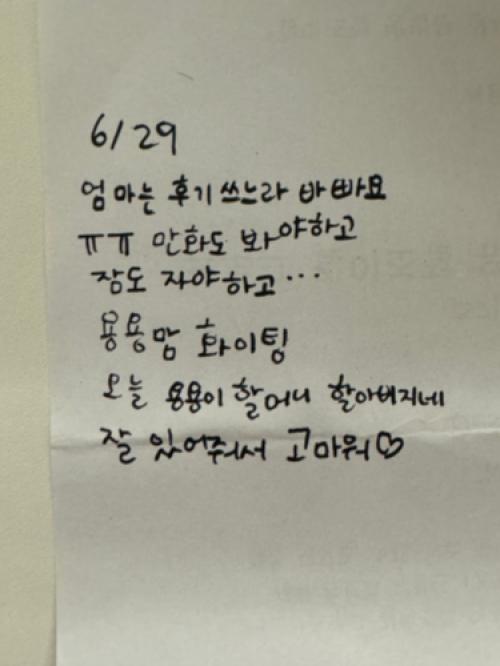 6/29
엄마는 후기쓰느라 바빠요
ㅠㅠ 만화도 봐야하고
잠도 자야하고...
용용맘 화이팅
오늘 용용이 할머니 할아버지네
잘 있어줘서 고마워♡